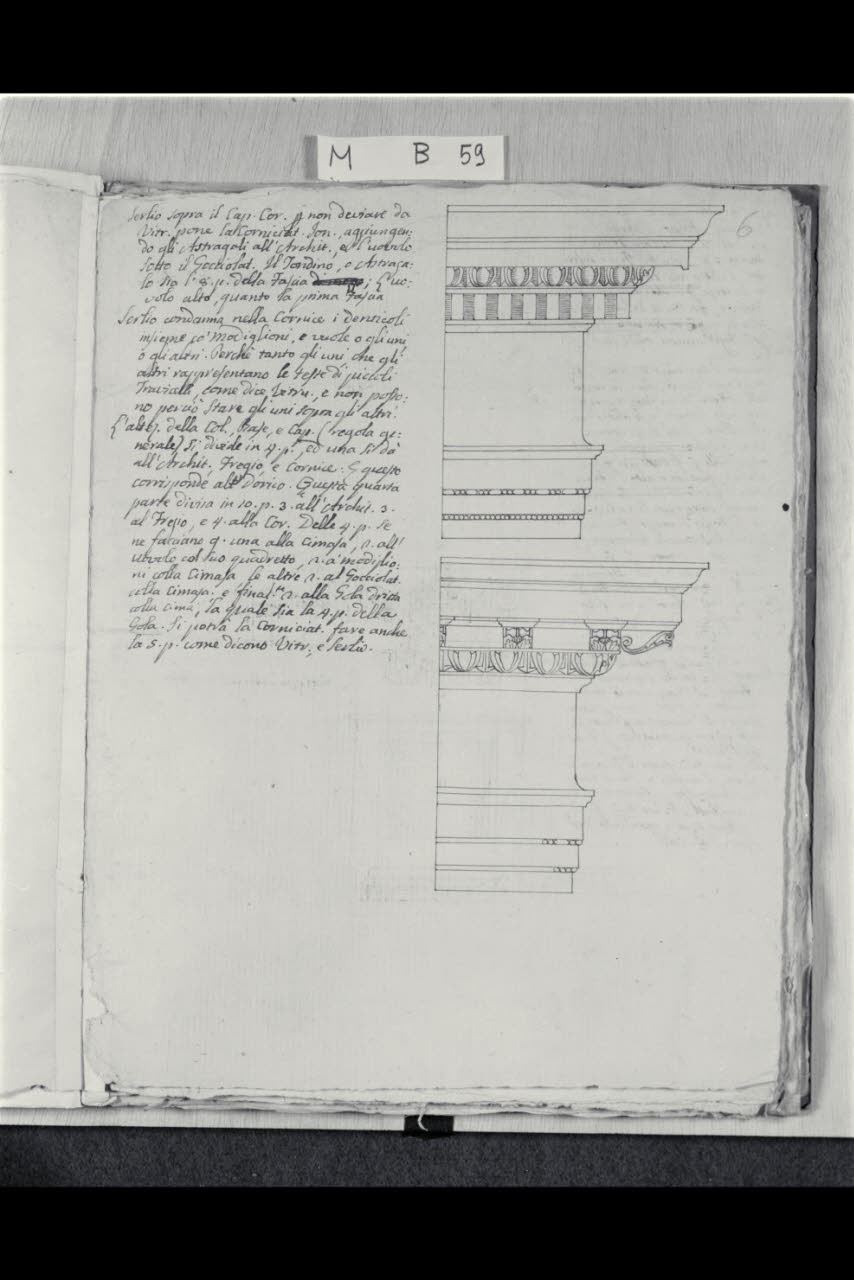 M B 59
6
Serlio sopra il Cap. Cor. p non deviare da
Vitr. pone la Corniciat. Jon., aggiungen:
do gli Astragali all'Archit., e l'uovolo
sotto il Gocciolat. Il Tondino, o Astraga:
lo sia l'8. p. della Fascia ; L'uo:
volo alto, quanto la prima Fascia
Serlio condanna nella Cornice i Denticoli
insieme co' Modiglioni, e vuole o gli uni,
o gli altri. Perchè tanto gli uni che gli
altri rappresentano le teste di piccioli
Travicelli, come dice Vitru., e non posso:
no perciò stare gli uni sopra gli altri.
L'altez. della Col., Base, e Cap. (regola ge:
nerale) si divide in 4. p., ed una si dà
all'Archit., Fregio, e Cornice. E questo
corrisponde all' Dorico. Questa quarta
parte divisa in 10. p. 3. all'Archit. 3.
al Fregio, e 4. alla Cor. Delle 4. p. se
ne facciano 9. una alla Cimasa, 2. all'
Uovolo col suo quadretto, 2. a' modiglio:
ni colla Cimasa, le altre 2. al Gocciolat.
colla Cimasa, e final.te 2. alla Gola dritta
colla cima, la quale sia la 4. p. della
Gola. Si potrà la Corniciat. fare anche
la 5. p. come dicono Vitr., e Serlio.